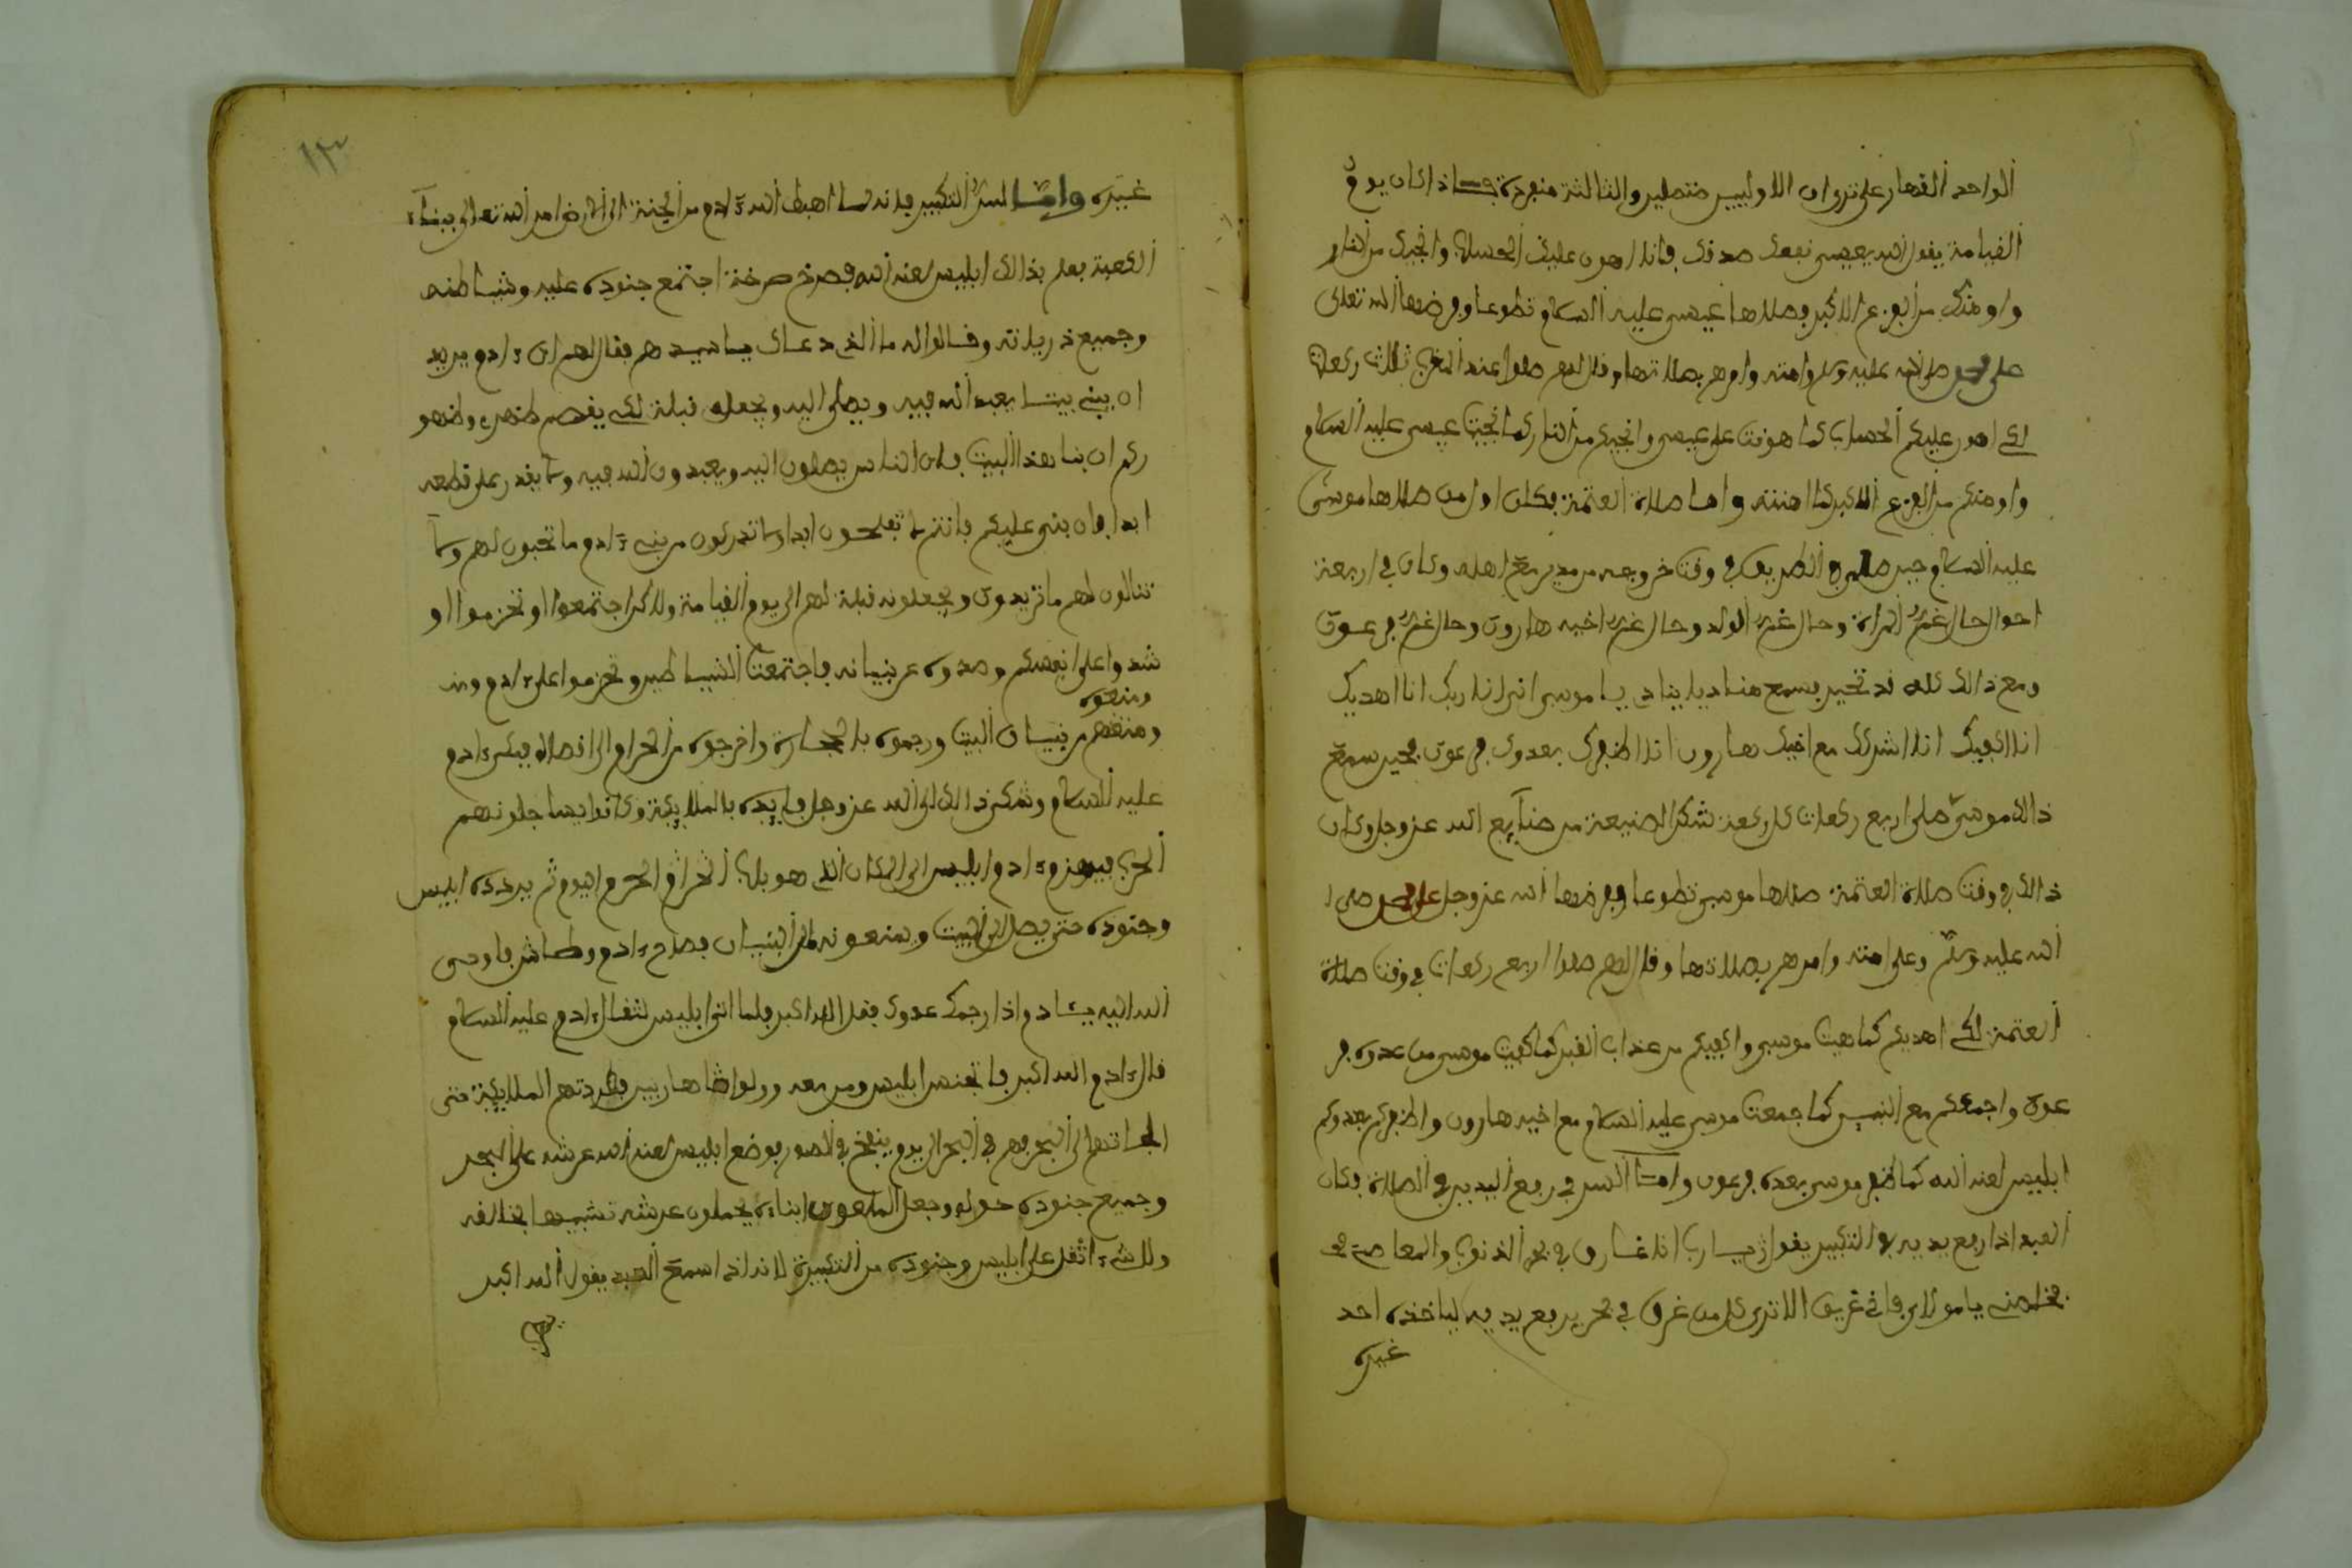 الواحد القهار على ترى ان الاوليين متصلين والثالثة منفردة فاذا كان يوم
القيامة يقول الله يعيسى نفعك صدقك فانا اهون عليك الحساب وانجيك من النار
واومنك من الفزع الاكبر وصلاها عيسى عليه السلام تطوعا وفرضها الله تعالى
على محمد صلى الله عليه وسلم وامته وامرهم بصلاتها وقال لهم صلوا عند المغرب ثلاث ركعات
لكي اهون عليكم الحساب كما هونت على عيسى وانجيكم من النار كما نجيت عيسى عليه السلام
واومنكم من الفزع الاكبر كما امنته واما صلاة العتمة فكان اول من صلاها موسى
عليه السلام حين الطريق في وقت خروجه من مدين مع اهله وكان في اربعة
احوال حال غم المراة وحال غم الولد وحال غم اخيه هارون وحال غم فرعون
ومع ذالك كله قد تحير فسمع مناديا ينادي يا موسى اني انا ربك انا اهديك
انا اكفيك انا اشركك مع اخيك هارون انا اظفرك بعدوك فرعون فحين سمع
ذالك موسى صلى اربع ركعات كل ركعة شكرا لصنيعة من صنايع الله عز وجل وكان
ذالك في وقت صلاة العتمة صلاها موسى تطوعا وفرضها الله عز وجل على محمد صلى ا
الله عليه وسلم وعلى امته وامرهم بصلاتها وقال لهم صلوا اربع ركعات في وقت صلاة
العتمة لكي اهديكم كما هديت موسى واكفيكم من عذاب القبر كما كفيت موسى من عدوه فر
عون واجمعكم مع النبيين كما جمعت موسى عليه السلام مع اخيه هارون واظفركم بعدوكم
ابليس لعنه الله كما ظفر موسى بعدوه فرعون واما السر في رفع اليدين في الصلاة فكان
العبد اذا رفع يديه في التكبير يقول يا رب انا غارق في بحر الذنوب والمعاصي
فخلصني يا مولاي فاني غريق الا ترى كل من غرق في بحر يرفع يديه لياخذه احد
غيره
١٣
غيره واما السر التكبير فانه لما اهبط الله ءادم من الجنة الى الارض امر الله تعالى ببناء
الكعبة فعلم بذالك ابليس لعنه الله فصرخ صرخة اجتمع جنوده عليه وشياطنه
وجميع ذرياته وقالوا له ما الذي دعاك يا سيدهم فقال لهم ان ءادم يريد
ان يبني بيتا يعبد الله فيه ويصلى اليه ويجعله قبلة لكي يقصم ظهري وظهو
ركم ان بنا هذا البيت فان الناس يصلون اليه ويعبدون الله فيه ولا يقدر على قطعه
ابدا فان بنى عليكم فانتم لا تفلحون ابدا ولا تدركون من بني ءادم ما تحبون لهم ولا
تنالون لهم ما تريدون ويجعلونه قبلة لهم الى يوم القيامة ولاكن اجتمعوا وتحزموا او
شدوا على انفسكم وصدوه عن بنيانه فاجتمعت الشياطين وتحزموا على ءادم ومنـ
ومنعوه
ومنعهم من بنيان البيت ورجموه بالحجارة واخرجوه من الحرام الى اقصاه فبكى ءادم
عليه السلام وشكى ذالك الى الله عز وجل فايده بالملايكة وكانوا يساجلونهم
الحرب فيهزم ءادم ابليس الى المكان الذي هو باب الحرام اليوم ثم يردده ابليس
وجنوده حتى يصل الى البيت ويمنعونه من البنيان فصاح ءادم وطاش فاوحى
الله اليه يا ءادم اذا رجمك عدوك فقل الله اكبر فلما اتى ابليس لقتال ءادم عليه السلام
قال ءادم الله اكبر فانخنس ابليس ومن معه وولوا هاربين فطردتهم الملايكة حتى
الجاتهم الى البحر فهم في البحر الى يوم ينفخ في الصور فوضع ابليس لعنه الله عرشه على البحر
وجميع جنوده حوله وجعل الملعون ابناءه يحملون عرشه تشبيها بخالقه
ولا شيء اثقل على ابليس وجنوده من التكبيرة لانه اذا سمع العبد يقول الله اكبر